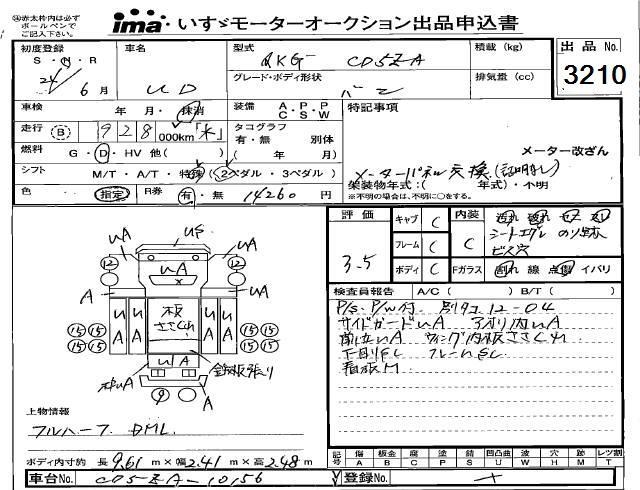 ㊟赤太枠内は必ず
ボールペンで
ご記入下さい。
ima いすゞモーターオークション出品申込書
初度登録 車名 型式 積載 (kg) 出品 No.
S・H・R QKG- CD5ZA
24 6 月 UD グレード・ボディ形状 排気量 (cc) 3210
バン
車検 年・月・抹消 装備 A・P・P 特記事項
C・S・W
走行 B 928 000km タコグラフ
有・無 別体 メーター改ざん
燃料 G・D・HV 他( ) ( 年 月) メーターパネル交換(証明ナシ)
シフト M/T・A/T・特殊 (2ペダル・3ペダル) 架装物年式:( 年式)・不明
※不明の場合は、不明に○をする。
色 指定 R券 有・無 14260 円
評価 キャブ C 内装
フレーム C C シートコゲ ノリ跡
3.5 ビス穴
ボディ C Fガラス 割れ 線 点傷 イバリ
検査員報告 A/C ( ) B/T ( )
P/S・P/W付 別タコ 12-04
サイドガードUA アオリ内UA
前廻UA ウィング内板ささくれ
下回りSC フレームSC
看板M
UA US UA
12 UA 12
A X A
UA UA 板 ささくれ UA UA
15 15 15 15
15 15 15 15
UA
UA A
9
上物情報
フルハーフ DML
ボディ内寸約 長 9.61 m×幅 2.41 m×高 2.48 m
記号 傷 板金 腐 塗 錆 凹 凸凹曲 波 穴 跡 レツ割
A B C P S E U W H M T
車台No. CD5ZA-10156 登録No.